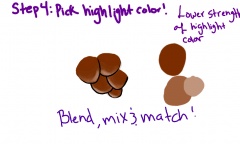 Step 4: Pick highlight color!
Lower strength
of highlight
color
Blend, mix & match!